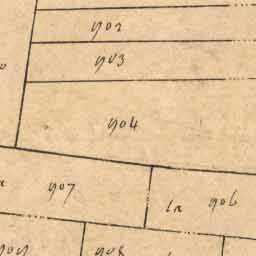 902
903
904
907
la 906
909
908